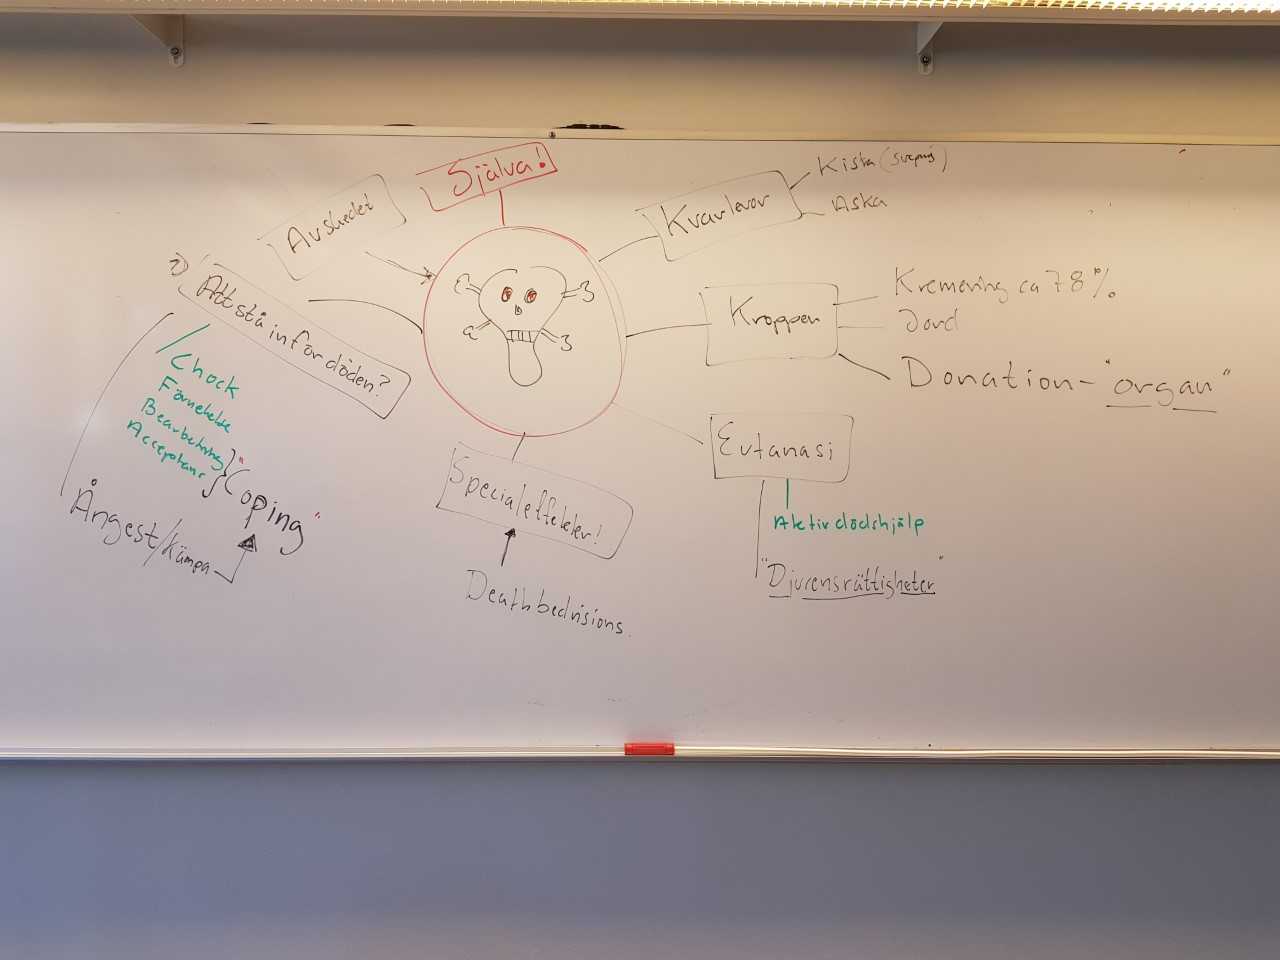 Själva!
Avskedet
Kvarlevor
Kista (svepning)
Aska
?)
Att stå inför döden?
Kroppen
Kremering ca 78%
Jord
Donation - "organ"
Chock
Förnekelse
Bearbetning
Acceptans
"Coping"
Ångest/Kämpa
Specialeffekter!
Deathbedvisions.
Eutanasi
Aktiv dödshjälp
"Djurensrättigheter"